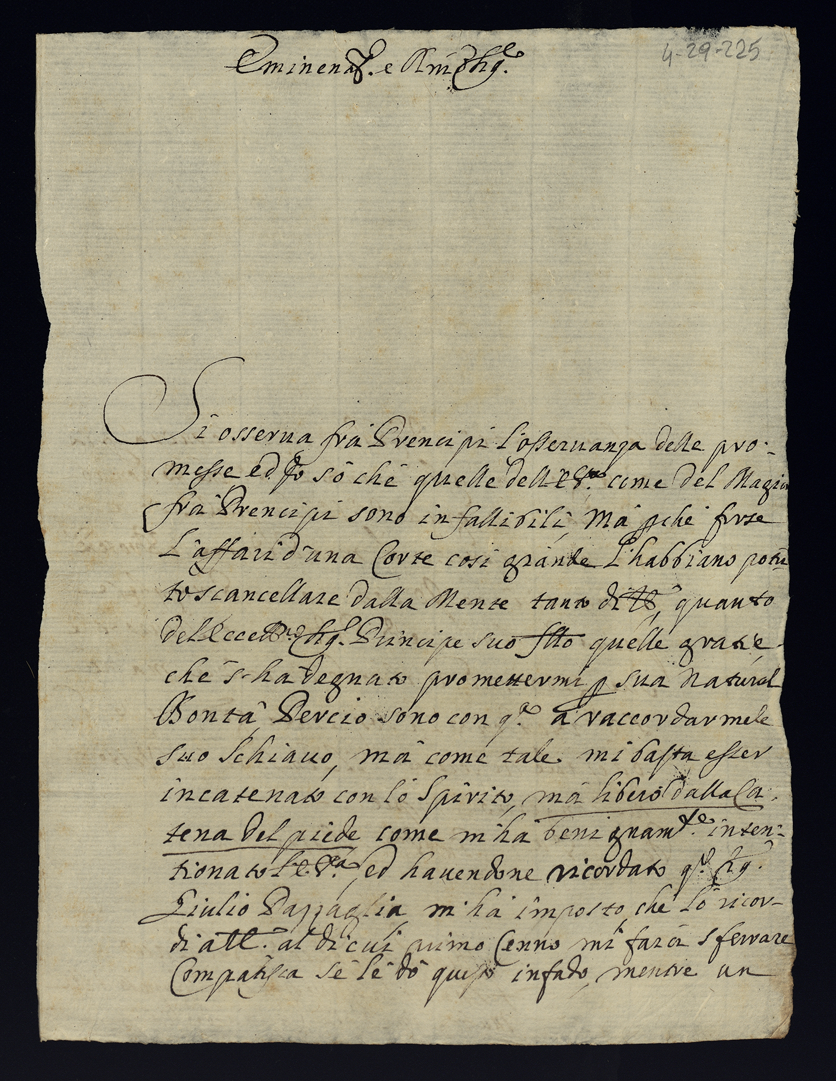 4-29-225
Eminenza. e
Si osserua frà Prencipi l'osseruanza delle pro-
messe ed Io sò chè quelle dell'E.V.ra come del Magior
frà Prencipi sono infallibili, Mà pche forse
l'affari d'una Corte così grànde l'habbiano potu
to scancellare dalla Mente tanto di V.E., quanto
dell'Ecce Sig.r Prencipe suo quelle gratie,
chè s'hà degnato promettermi p sua natural
Bontà Perciò sono con q.ta à raccordarmele
suo schiauo, mà come tale mi basta esser
incatenato con lò spirito, mà libero dalla Ca-
tena del piede come m'hà benignam.te inten-
tionato l'E.V.ra, ed hauendone ricordato q.to Sig.r
Giulio Pazzaglia, m'hà imposto, che lo ricor-
di all' al di cui primo Cenno mi farà sferrare
Compatisca sè lè dò questo infado, mentre un